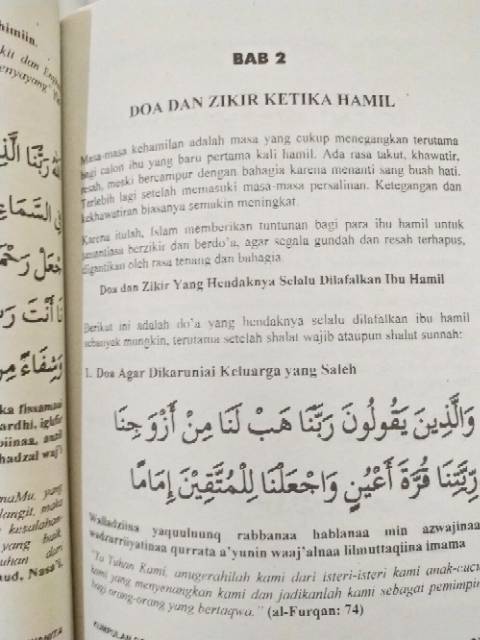 himiin.
kit dan
menyayang"
رَبَّنَا الَّذِ
فِي السَّمَاءِ
اجْعَلْ رَحْمَ
أَنْتَ رَ
وَشِفَاءً مِنْ
ka fissamaai
ardhi, ighfir
biinaa, anzil
hadzal waj'i
maMu, yang
langit, maka
kesalahan-
yang baik
dari
aud, Nasa'i.
BAB 2
DOA DAN ZIKIR KETIKA HAMIL
Masa-masa kehamilan adalah masa yang cukup menegangkan terutama
bagi calon ibu yang baru pertama kali hamil. Ada rasa takut, khawatir,
resah, meski bercampur dengan bahagia karena menanti sang buah hati.
Terlebih lagi setelah memasuki masa-masa persalinan. Ketegangan dan
kekhawatiran biasanya semakin meningkat.
Karena itulah, Islam memberikan tuntunan bagi para ibu hamil untuk
senantiasa berzikir dan berdo'a, agar segala gundah dan resah terhapus,
digantikan oleh rasa tenang dan bahagia.
Doa dan Zikir Yang Hendaknya Selalu Dilafalkan Ibu Hamil
Berikut ini adalah do'a yang hendaknya selalu dilafalkan ibu hamil
sebanyak mungkin, terutama setelah shalat wajib ataupun shalat sunnah:
1. Doa Agar Dikaruniai Keluarga yang Saleh
وَالَّذِينَ يَقُولُونَ رَبَّنَا هَبْ لَنَا مِنْ أَزْوَجِنَا
رِّيَّتِنَا قُرَّةَ أَعْيُنٍ وَاجْعَلْنَا لِلْمُتَّقِينَ إِمَامًا
Walladziina yaquulnunq rabbanaa hablanaa min azwajinaa
wadzurriiyatinaa qurrata a'yunin waaj'alnaa lilmuttaqiina imama
"Ya Tuhan Kami, anugerahilah kami dari isteri-isteri kami anak-cucu
kami yang menyenangkan kami dan jadikanlah kami sebagai pemimpin
bagi orang-orang yang bertaqwa." (al-Furqan: 74)
KUMPULAN